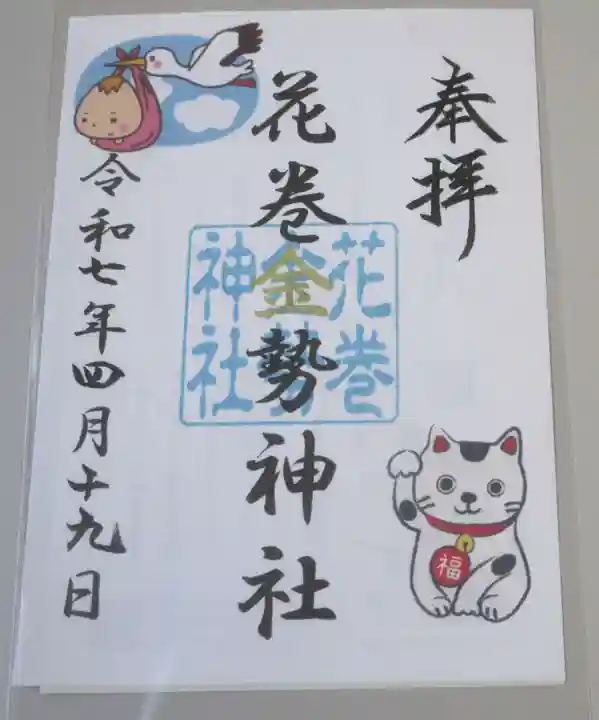 奉拝
花巻金勢神社
花巻
金勢
神社
令和七年四月十九日
福